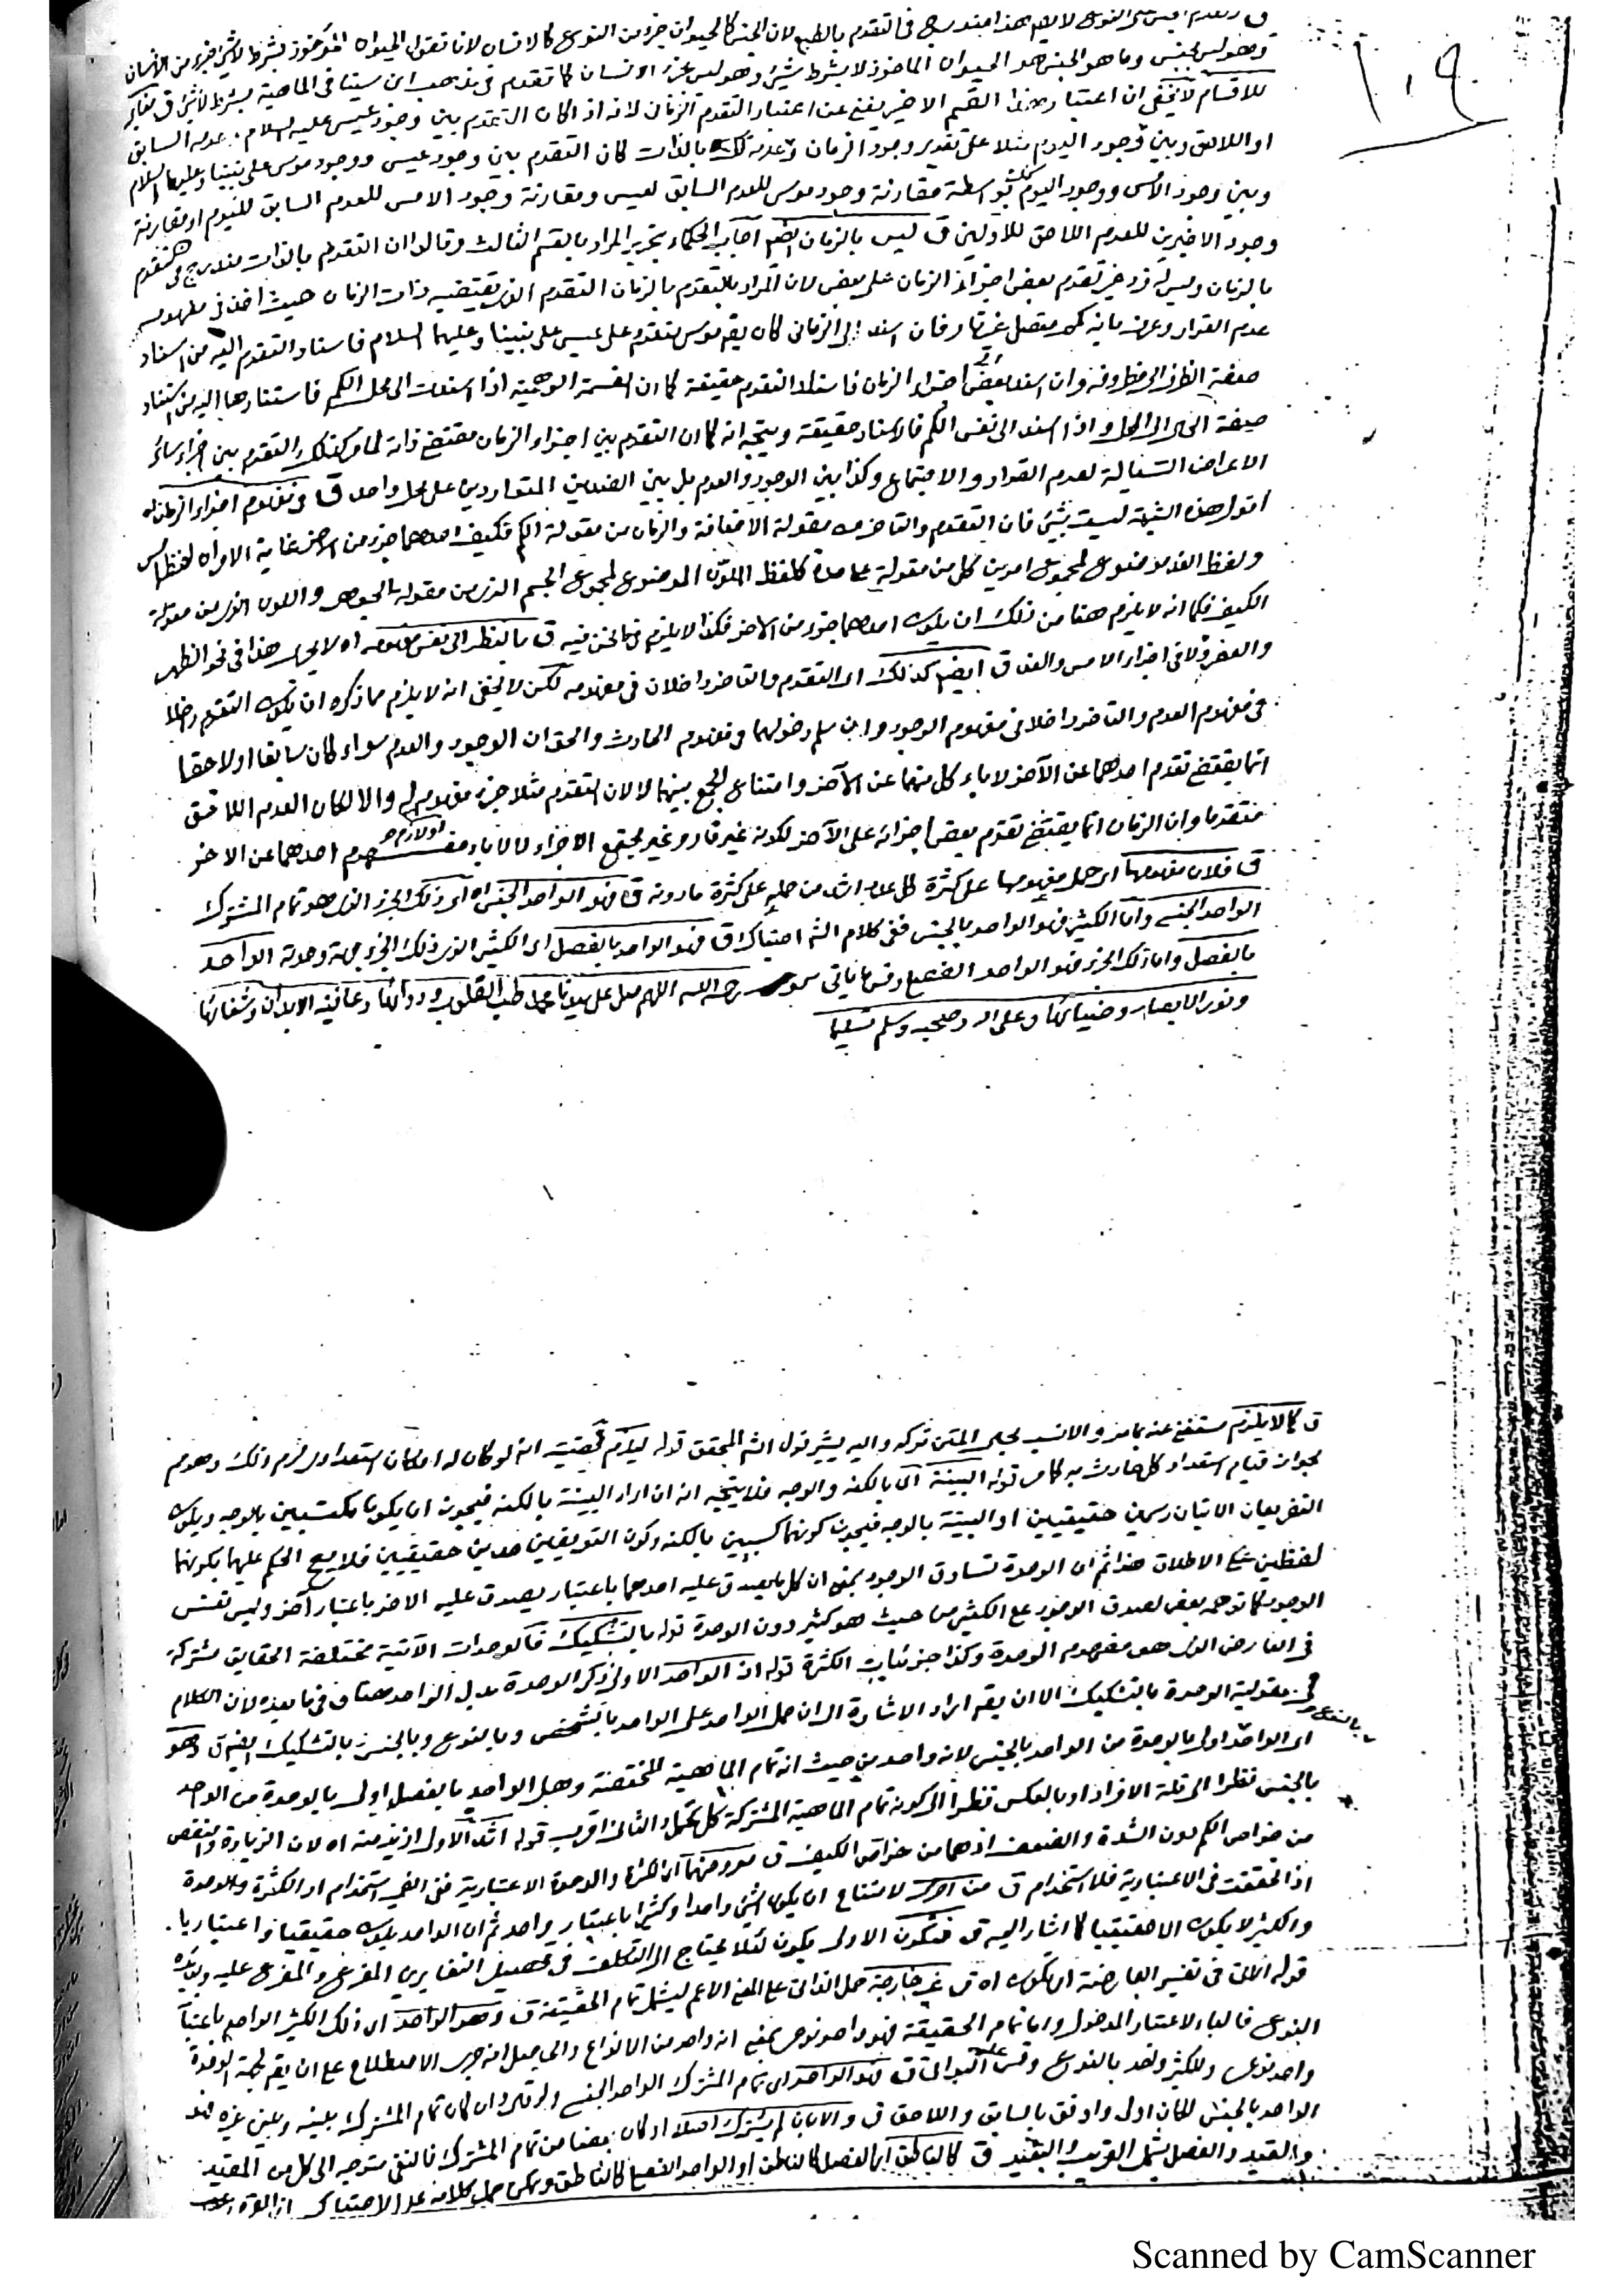 ١٠٩
لان الجنس كالحيوان جزء من النوع كالانسان لانا نقول الحيوان المأخوذ بشرط
وهو ليس بجنس وما هو الجنس هو الحيوان المأخوذ لا بشرط شيء وهو ليس جزء الانسان كما تقدم في مذهب ابن سينا في الماهية بشرط لا شيء ق
للاقسام لا يخفى ان اعتبار هذا القسم الاخير يغني عن اعتبار التقدم الزماني لانه اذا كان التقدم بين وجود عيسى عليه السلام وعدمه السابق
او اللاحق وبين وجود اليوم مثلا على تقدير وجود الزمان وعدمه كذلك بالذات كان التقدم بين وجود عيسى ووجود موسى على نبينا وعليهما السلام
وبين وجود الامس ووجود اليوم كذلك بواسطة مقارنة وجود موسى للعدم السابق لعيسى ومقارنة وجود الامس للعدم السابق لليوم او مقارنة
وجود الاخيرين للعدم اللاحق للاولين ق ليس بالزمان الخ اجاب الحكماء بتحرير المراد بالقسم الثالث وقالوا ان التقدم بالذات مندرج في التقدم
بالزمان وليس له فرد غير تقدم بعض اجزاء الزمان على بعض لان المراد بالتقدم بالزمان التقدم الذي يقتضيه ذات الزمان حيث اخذ في مفهومه
عدم القرار وعرف بانه كم متصل غير قار فان اسند الى الزماني كان يقع موسى متقدم على عيسى على نبينا وعليهما السلام فاسناد التقدم اليه من اسناد
صفة الظرف الى مظروفه وان اسند الى بعض اجزاء الزمان فاسناد التقدم حقيقة كما ان القسمة الوهمية اذا اسندت الى محل الكم فاستنادها اليه من اسناد
صفة الحال الى المحل واذا اسند الى نفس الكم فالاسناد حقيقة ويتجه انه كما ان التقدم بين اجزاء الزمان مقتضى ذاته لما مر كذلك التقدم بين اجزاء سائر
الاعراض السيالة لعدم القرار والاجتماع وكذا بين الوجود والعدم بل بين الضدين المتواردين على محل واحد ق في مفهوم اجزاء الزمان اه
اقول هذه الشبهة ليست بشيء فان التقدم والتاخر من مقولة الاضافة والزمان من مقولة الكم فكيف احدهما جزء من الاخر غاية الامر ان لفظ امس
ولفظ الغد موضوع لمجموع امرين كل من مقولة على حدة كلفظ الملون الموضوع لمجموع الجسم الذي من مقولة الجوهر واللون الذي من مقولة
الكيف فكما انه لا يلزم هنا من ذلك ان يكون احدهما جزء من الاخر فكذا لا يلزم فيما نحن فيه ق بالنظر الى نفس مفهومه اه لا يجري هذا في نحو الظهر
والعصر ولا في اجزاء الامس والغد ق ايضا كذلك اي التقدم والتاخر داخلان في مفهومه لكن لا يخفى انه لا يلزم مما ذكره ان يكون التقدم داخلا
في مفهوم العدم والتاخر داخلا في مفهوم الوجود وان سلم دخولهما في مفهوم الحادث والحق ان الوجود والعدم سواء كان سابقا او لاحقا
انما يقتضي تقدم احدهما عن الآخر لاباء كل منهما عن الآخر وامتناع الجمع بينهما لا لان التقدم مثلا جزء مفهومه والا لكان العدم اللاحق
متقدما وان الزمان انما يقتضي تقدم بعض اجزائه على الآخر لكونه غير قار وغير مجتمع الاجزاء لا لاباء مفهوم احدهما عن الاخر
ق فلان مفهومها اي حمل مفهومها على كثرة كل عدد اشد من حمله على كثرة ما دونه ق فهو الواحد الجنس اه اي ذلك الجزء الذي هو تمام المشترك
الواحد الجنسي واما الكثير فهو الواحد بالجنس ففي كلام الشه احتباك ق فهو الواحد بالفصل اي الكثير الذي ذلك الجزء جهة وحدته الواحد
بالفصل واما ذلك الجزء فهو الواحد الفصلي وقس ما ياتي رحمه الله اللهم صل على سيدنا محمد طب القلوب ودوائها وعافية الابدان وشفائها
ونور الابصار وضيائها وعلى اله وصحبه وسلم تسليما
ق كما لا يلزم مستغنى عنه بما مر والانسب تركه واليه يشير قول الشه المحقق قوله ليلزم انه لو كان له امكان استعدادي لزم ذلك وهو مم
لجواز قيام استعداد كل حادث به كما مر قوله البينة اي بالكنه والوجه فلا يتجه انه ان اراد البينة بالكنه فيجوز ان يكونا مكتسبين بالوجه ويكون
التفريعان الاتيان رسمين حقيقيين او البينة بالوجه فيجوز كونهما كسبيين بالكنه وكون التعريفين حدين حقيقيين فلا يصح الحكم عليهما بكونهما
لفظيين على الاطلاق هذا ثم ان الوحدة تساوق الوجود بمعنى ان كل ما يصدق عليه احدهما باعتبار يصدق عليه الاخر باعتبار آخر وليس نفس
الوجود كما توهمه بعض لصدق الوجود على الكثير من حيث هو كثير دون الوحدة قوله بالتشكيك فالوحدات الآتية مختلفة الحقايق مشتركة
في العارض الذي هو مفهوم الوحدة وكذا جزئيات الكثرة قوله ان الواحد الاولى ذكر الوحدة بدل الواحد هنا ق فيما بعده لان الكلام
في مقولية الوحدة بالتشكيك الا ان يقم اراد الاشارة الى ان حمل الواحد على الواحد بالشخص وبالنوع وبالجنس بالتشكيك ايضا ق وهو
بالنوع
اي الواحد اولى بالوحدة من الواحد بالجنس لانه واحد من حيث انه تمام الماهية المختصة وهل الواحد بالفصل اولى بالوحدة من الواحد
بالجنس نظرا الى قلة الافراد او بالعكس نظرا الى كونه تمام الماهية المشتركة كل محتمل والثاني اقرب قوله اشد الاولى ازيد منه اه لان الزيادة والنقص
من خواص الكم دون الشدة والضعف اذ هما من خواص الكيف ق معروضهما اي الكثرة والوحدة الاعتبارية ففي الضمير استخدام او الكثرة والوحدة
اذا تحققت في الاعتبارية فلا استخدام ق من امور لامتناع ان يكون الشيء واحدا وكثيرا باعتبار واحد ثم ان الواحد يكون حقيقيا واعتباريا
والكثير لا يكون الا حقيقيا كما اشار اليه ق فتكون الاولى يكون لئلا يحتاج الى التكلف في تحصيل التغاير بين المفرع والمفرع عليه ويؤيده
قوله الاتي في تفسير العارضة اي تكون اه ق غير خارجة حمل الذاتي على المعنى الاعم ليشمل تمام الحقيقة ق وهو الواحد اي ذلك الكثير الواحد باعتبار
النوع فالباء لاعتبار المدخول واما تمام الحقيقة فهو واحد نوعي بمعنى انه واحد من الانواع والحاصل انه جرى الاصطلاح على ان يقم لجهة الوحدة
واحد نوعي وللكثير واحد بالنوع وقس عليه البواقي ق فهو الواحد اي تمام المشترك الواحد الجنسي ولو قال وان كان تمام المشترك بينه وبين غيره فهو
الواحد بالجنس لكان اولى واوفق بالسابق واللاحق ق والا بان لم يشترك اصلا او كان بعضا من تمام المشترك فالنفي متوجه الى كل من المقيد
والقيد والفصل يشمل القريب والبعيد ق كالناطق اي الفصل كالناطق او الواحد الفصلي كالناطق ويمكن حمل كلامه على الاحتباك
Scanned by CamScanner